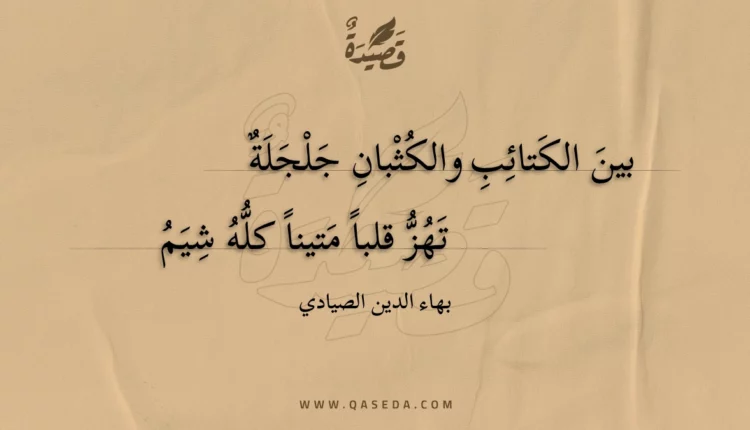 قَصِيْدَةٌ
بينَ الكَتائِبِ والكُثْبانِ جَلْجَلَةٌ
تَهُزُّ قلباً مَتيناً كلُّهُ شِيَمُ
بهاء الدين الصيادي
WWW.QASEDA.COM